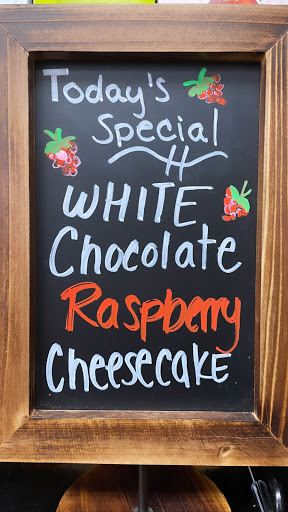 Today's
Special
WHITE
Chocolate
Raspberry
Cheesecake